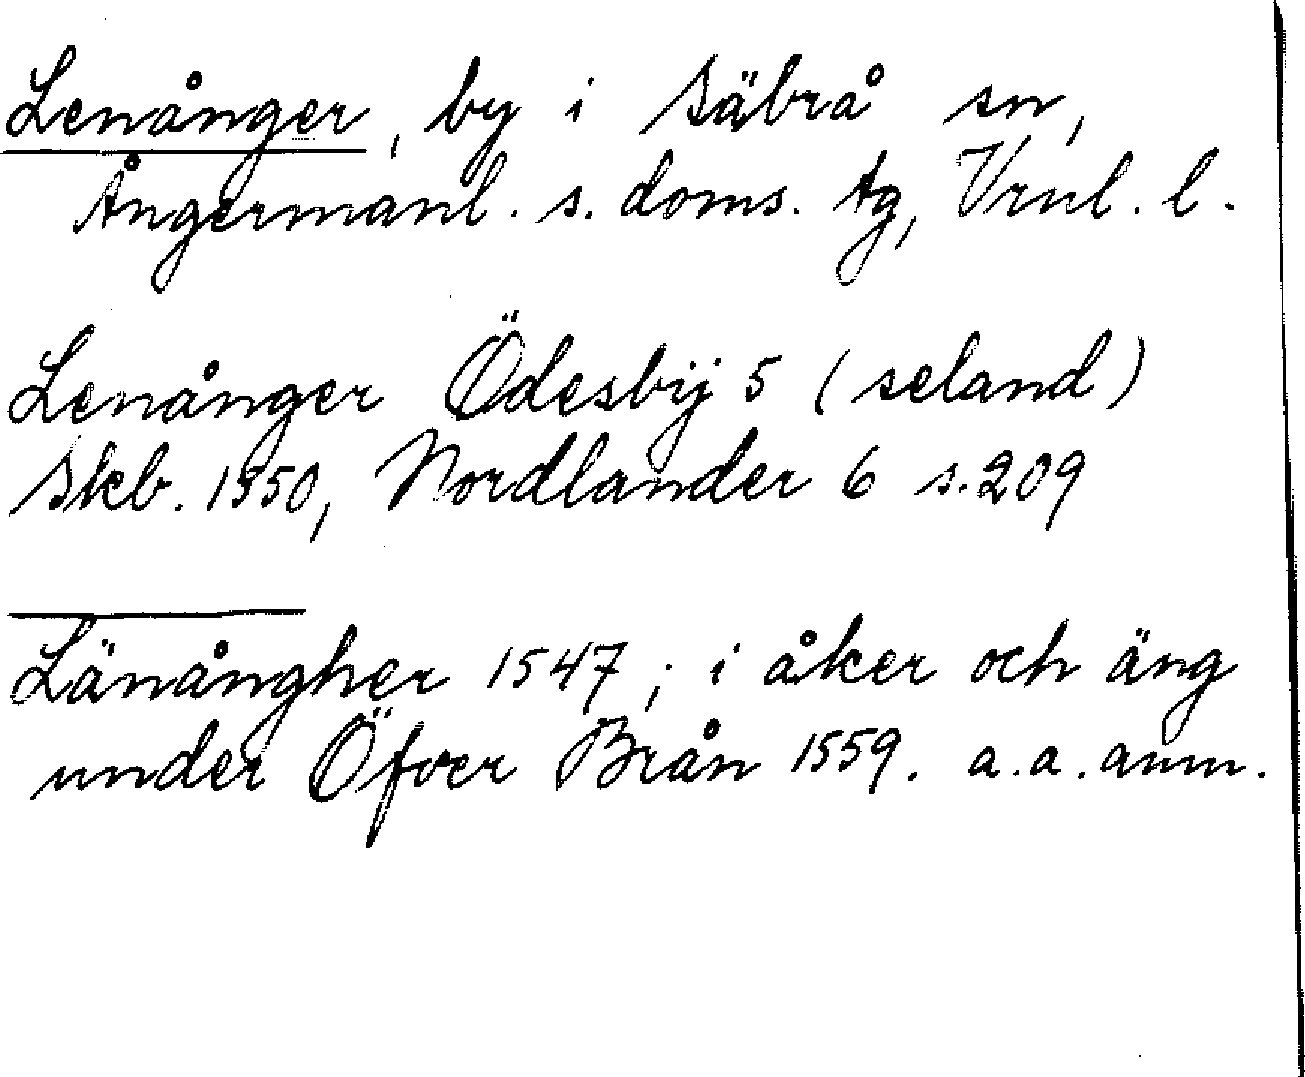 Lenånger, by i Säbrå sn,
Ångermanl. s. doms. tg, Vrnl. l.
Lenånger Ödesbÿ 5 (seland)
Skb. 1550, Nordlander 6 s. 209
Länångher 1547; i åker och äng
under Öfver Brån 1559. a.a. anm.